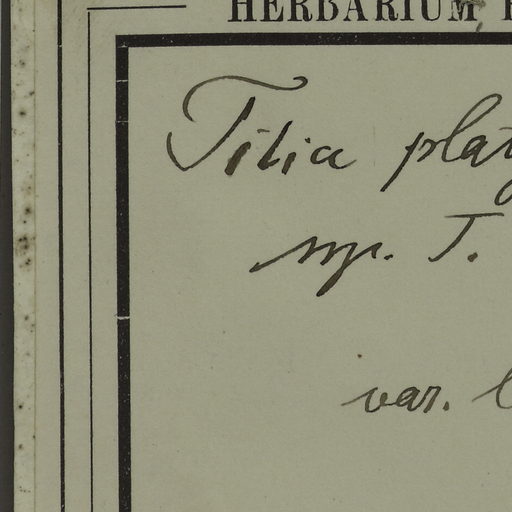 HERBARIUM
Tilia plat
ssp. T.
var.